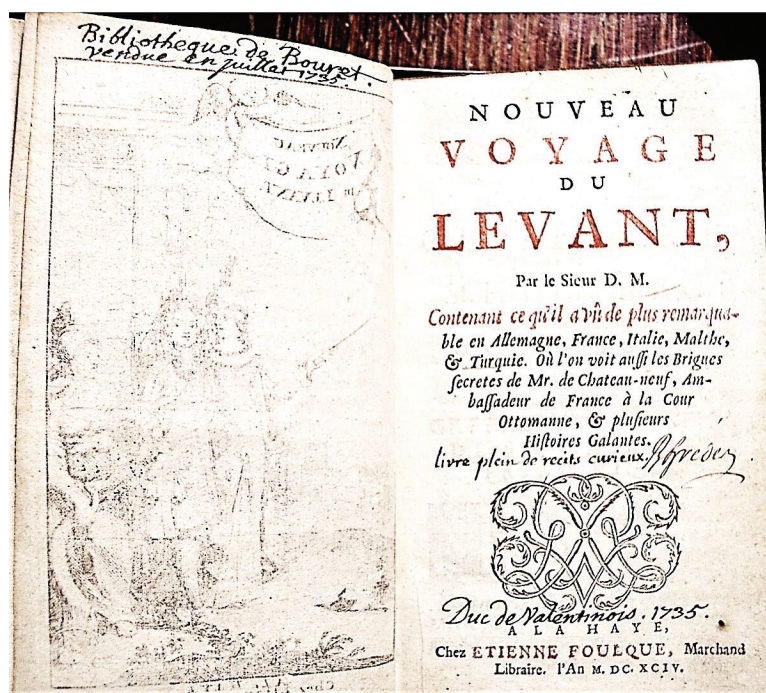 Bibliotheque de Bouret.
vendue en juillet 1735.
NOUVEAU
VOYAGE
DU
LEVANT,
NOUVEAU
VOYAGE
DU
LEVANT,
Par le Sieur D. M.
Contenant ce qu'il a vû de plus remarqua-
ble en Allemagne, France, Italie, Malthe,
& Turquie. Où l'on voit auſſi les Brigues
ſecretes de Mr. de Chateau-neuf, Am-
baſſadeur de France à la Cour
Ottomanne, & pluſieurs
Hiſtoires Galantes.
livre plein de recits curieux.
Duc de Valentinois. 1735.
A LA HAYE,
Chez ETIENNE FOULQUE, Marchand
Libraire. l'An M. DC. XCIV.